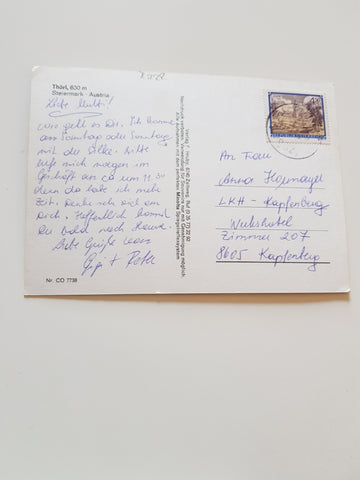 Thörl, 630 m
Steiermark - Austria
Liebe Mutti!
wie geht es Dir. Ich komme
am Samstag oder Sonntag
mit der Silke. Bitte
ruf mich morgen im
Geschäft an ca um 11.30
denn da habe ich mehr
Zeit. Denke viel an
Dich. Hoffentlich kommst
Du bald nach Hause.
Liebe Grüße von
Gigi + Peter
Nr. CO 7738
Nachdruck verboten. Verwendung als Illustration nur mit Genehmigung möglich.
REPUBLIK ÖSTERREICH
An Frau
Anna
LKH - Kapfenberg
Zimmer 207
8605 Kapfenberg